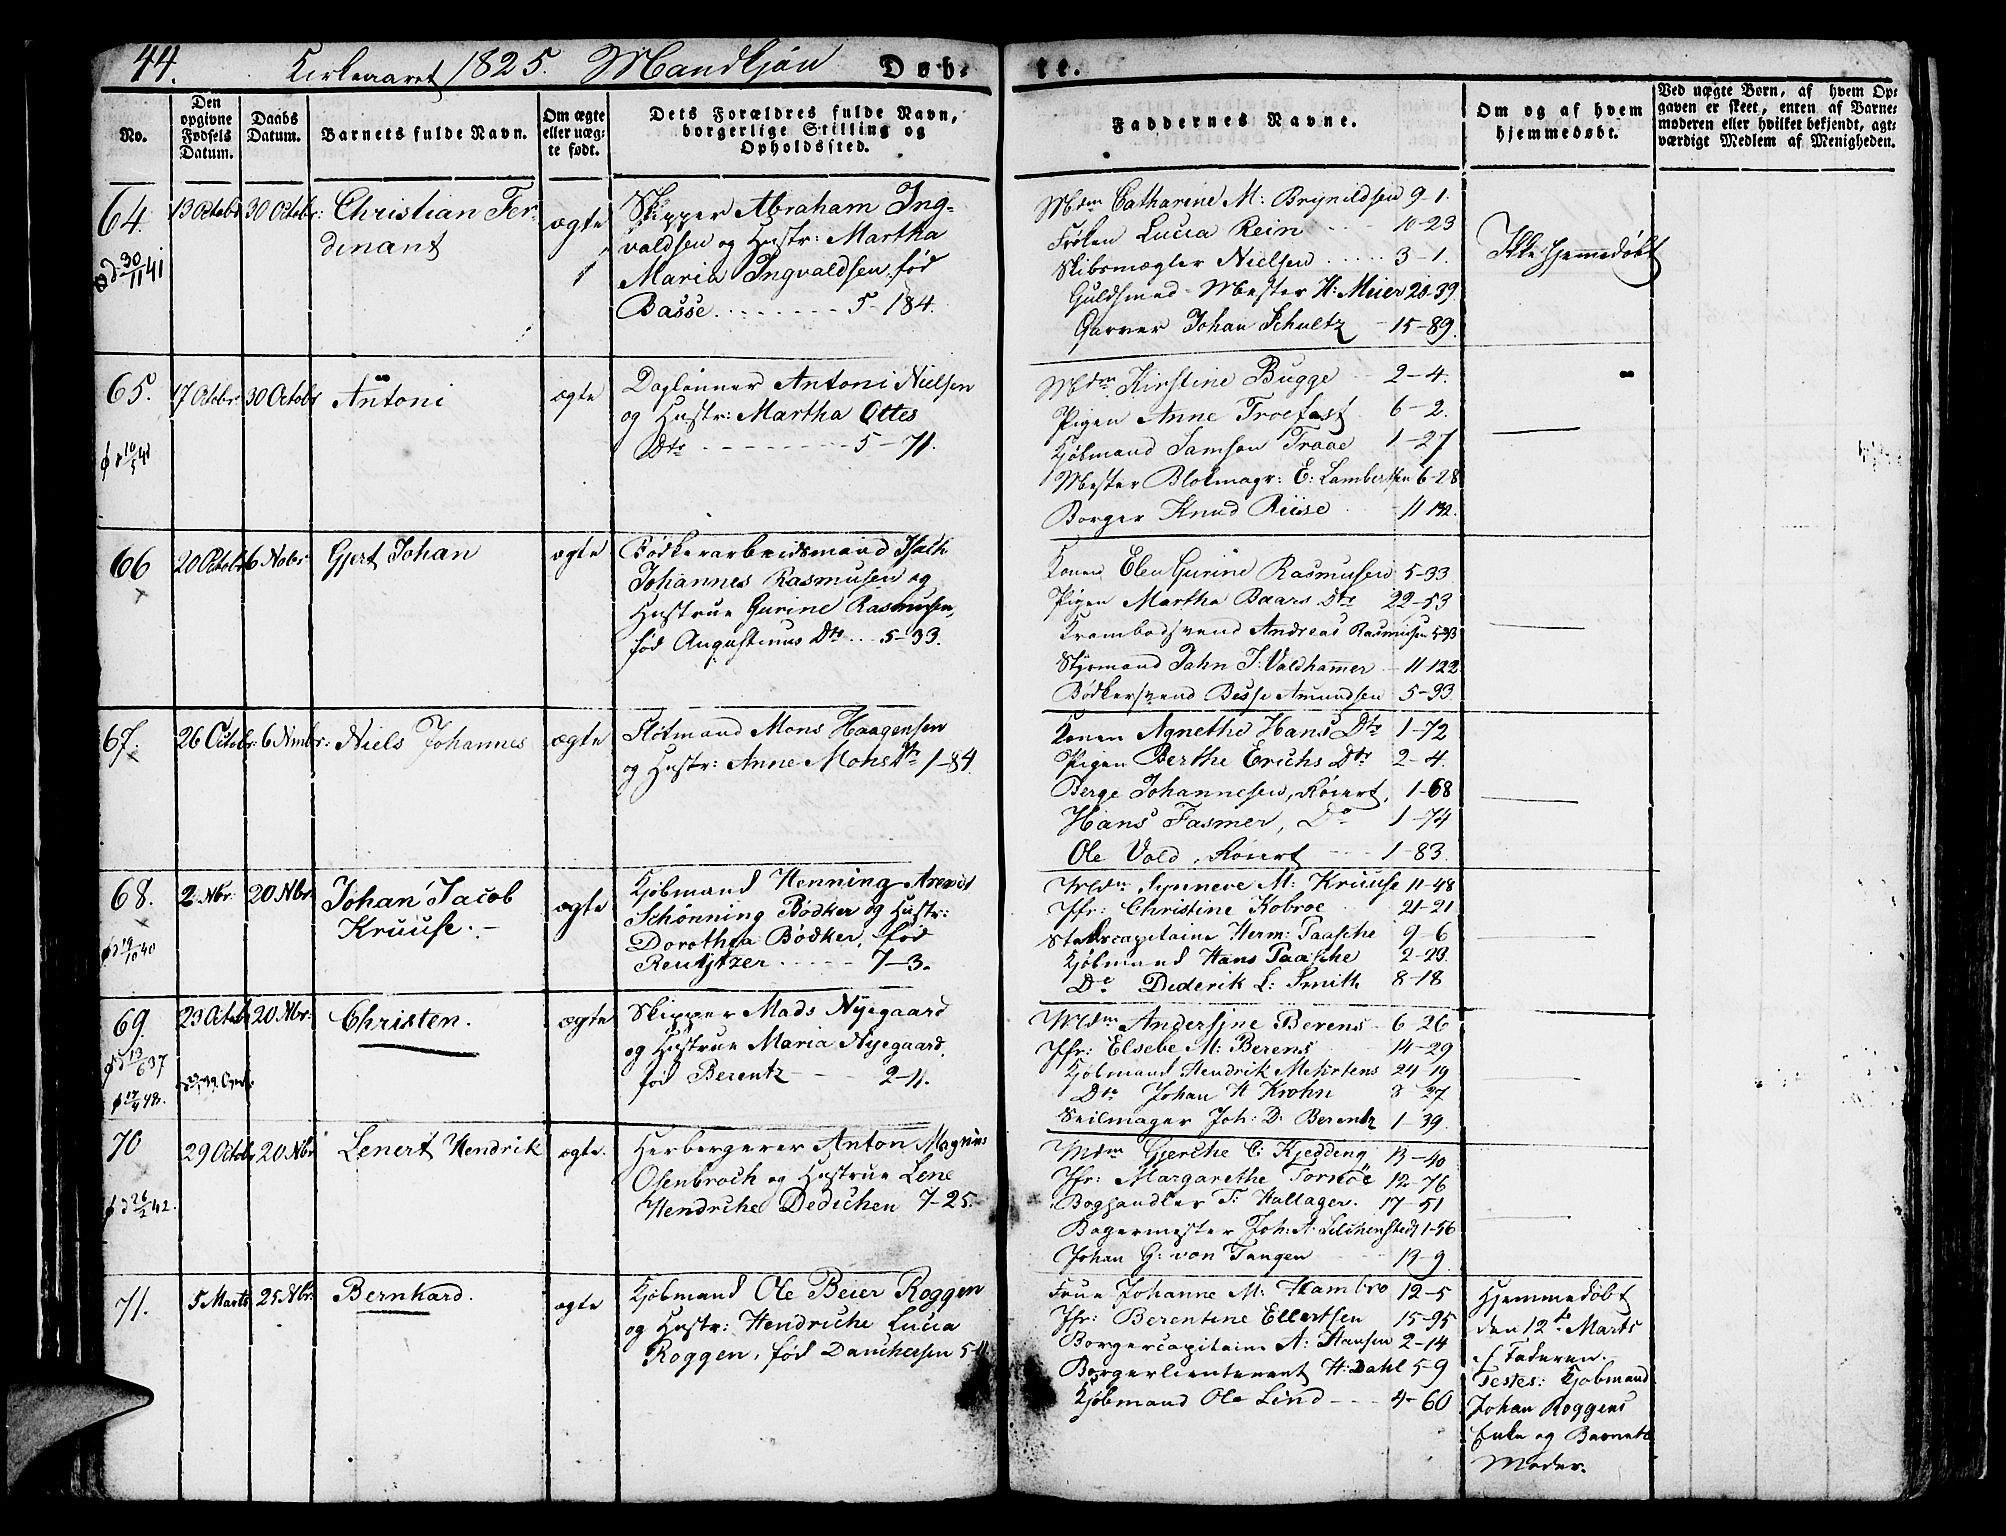 44.
Kirkeaaret 1825. Mandkjøn Døb-
te.
No.
Den opgivne Fødsels Datum.
Daabs Datum.
Barnets fulde Navn.
Om ægte eller uægte født.
Dets Forældres fulde Navn, borgerlige Stilling og Opholdssted.
Faddernes Navne.
Om og af hvem hjemmedøbt.
Ved uægte Børn, af hvem Opgaven er skeet, enten af Barnemoderen eller hvilket bekjendt, agtværdigt Medlem af Menigheden.
64. 13 Octobr 30 Octobr: Christian Fer-
dinant
ægte
Skipper Abraham Ing-
valdsen og Hustr: Martha
Maria Ingvaldsen, fød
Basse. 5-184.
Mdm Catharine M: Brynildsen 9-1.
Frøken Lucia Rein 10-23
Skibsmægler Nielsen 3-1.
Guldsmed-Mester H: Meier 20-39
Garver Johan Schultz 15-89.
Ikke hjemmedøbt
65. 17 Octobr 30 Octobr Antoni
ægte
Daglønner Antoni Nielsen
og Hustr: Martha Ottes
Dtr 5-71.
Mdm Kirstine Bugge 2-4.
Pigen Anne Troefast 6-2.
Kjøbmand Samson Traae 1-27
Mester Blokmagr: E: Lambertsen 6-28
Borger Knud Riise 11 132.
66 20 Octobr 6 Nobr Gjert Johan
ægte
Bødkerarbeidsmand Isach
Johannes Rasmusen og
Hustrue Gurine Rasmusen,
fød Augustinus Dtr 5-33.
Konen Elen Gurine Rasmusen 5-33
Pigen Martha Baars Dtr 22-53
Krambodsvend Andreas Rasmusen 5-33
Styrmand Jahn J: Valdhamer 11 122
Bødkersvend Besse Amundsen 5-33.
67. 26 Octobr: 6 Nvmbr: Niels Johannes
ægte
Fløtmand Mons Haagensen
og Hustr: Anne Mons Dtr 1-84.
Konen Agnethe Hans Dtr 1-72
Pigen Berthe Erichs Dtr 2-4.
Berge Johannesen, Røiert, 1-68
Hans Fasmer, Do 1-74
Ole Vold, Røiert 1-83.
68. 2 Nbr 20 Nbr Johan Jacob
Kruuse.
ægte
Kjøbmand Henning Arendt
Schønning Bødker og Hustr:
Dorothea Bødker, fød
Reutztzer 7-3.
Mdm Synneve M: Kruuse 11-48
Jfr: Christine Kobroe 21-21
Stabscapitaine Herm: Paasche 9-6
Kjøbmand Hans Paasche 2-23.
Do Diderik L: Smith 8-18
69. 23 Octobr 20 Nbr: Christen.
ægte
Skipper Mads Nyegaard
og Hustrue Maria Nyegaard,
fød Berentz 2-11.
Mdm Andersine Berens 6-26
Jfr: Elsebe M: Berens 14-29
Kjøbmand Hendrik Mehrtens 24-19
Dto Johan H Krohn 3 27
Seilmager Joh: D: Berentz 1-39.
70 29 Octobr 20 Nbr Lenert Hendrik
ægte.
Herbergerer Anton Magnus
Osenbroch og Hustrue Lene
Hendriche Dedichen 7-25.
Mdm Gjerche C: Kjedding 13-40
Jfr: Margarethe Tornöe 12-76
Boghandler F: Hallager. 17-51
Bagermester Joh: A: Lilchenstedt 1-56
Johan G: von Tangen 13-9.
71. 5 Marts 25 Nbr: Bernhard.
ægte
Kjøbmand Ole Beier Roggen
og Hustr: Hendriche Lucia
Roggen, fød Danckersen 5-11
Frue Johanne M: Hambro 12-5
Jfr: Berentine Ellertsen 15-95
Borgercapitaine A: Hansen 2-14
Borgerlieutenant H: Dahl 5-9
Kjøbmand Ole Lind 4-60
Hjemmedøbt
den 12te Marts
af Faderen.
Testes: Kjøbmand
Johan Roggens
Enke og Barnets
Moder.